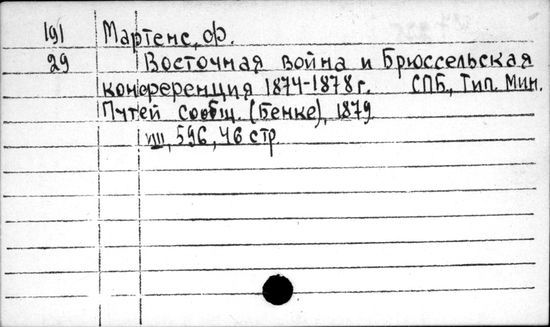 191 Мартенс, Ф.
29 Восточная война и Брюссельская
конференция 1874-1878 г. СПБ., Тип. Мин.
Путей сообщ. (Бенке), 1879
VIII, 596, 46 стр.